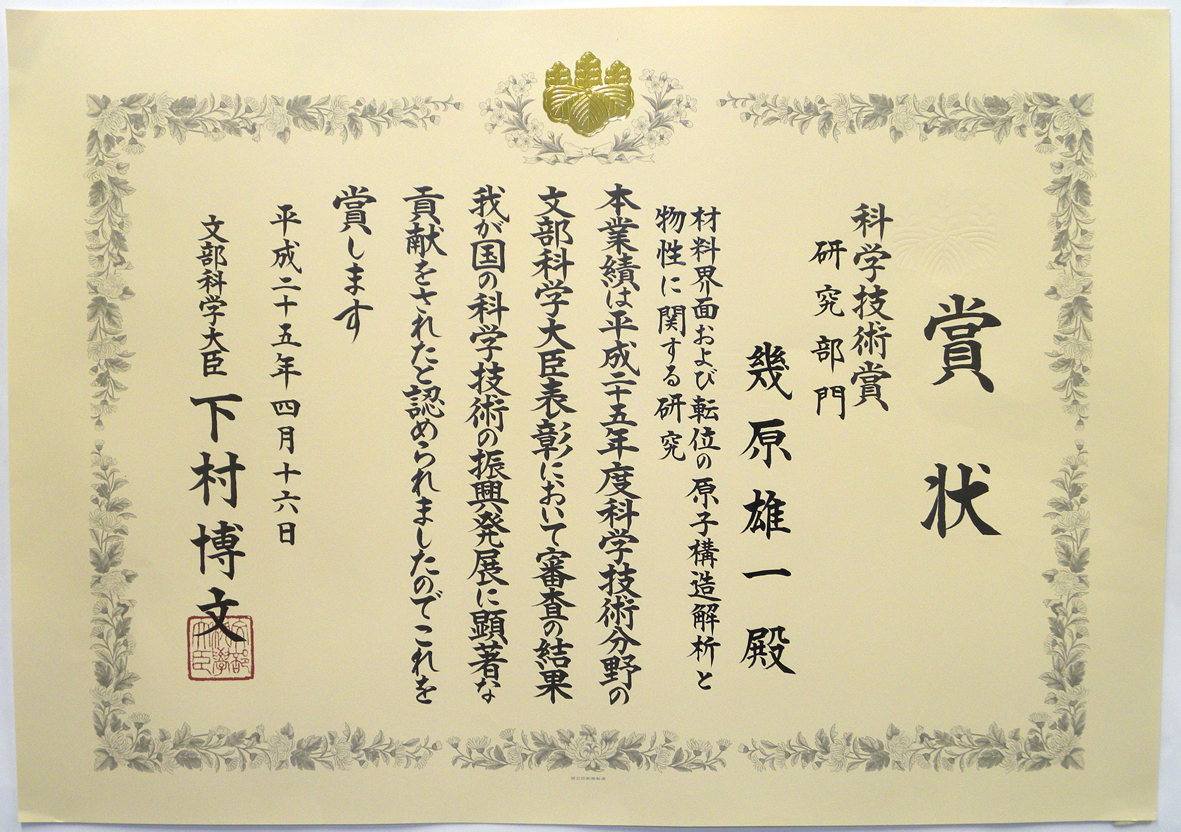 賞状
科学技術賞
研究部門
幾原雄一殿
材料界面および転位の原子構造解析と
物性に関する研究
本業績は平成二十五年度科学技術分野の
文部科学大臣表彰において審査の結果
我が国の科学技術の振興発展に顕著な
貢献をされたと認められましたのでこれを
賞します
平成二十五年四月十六日
文部科学大臣 下村博文